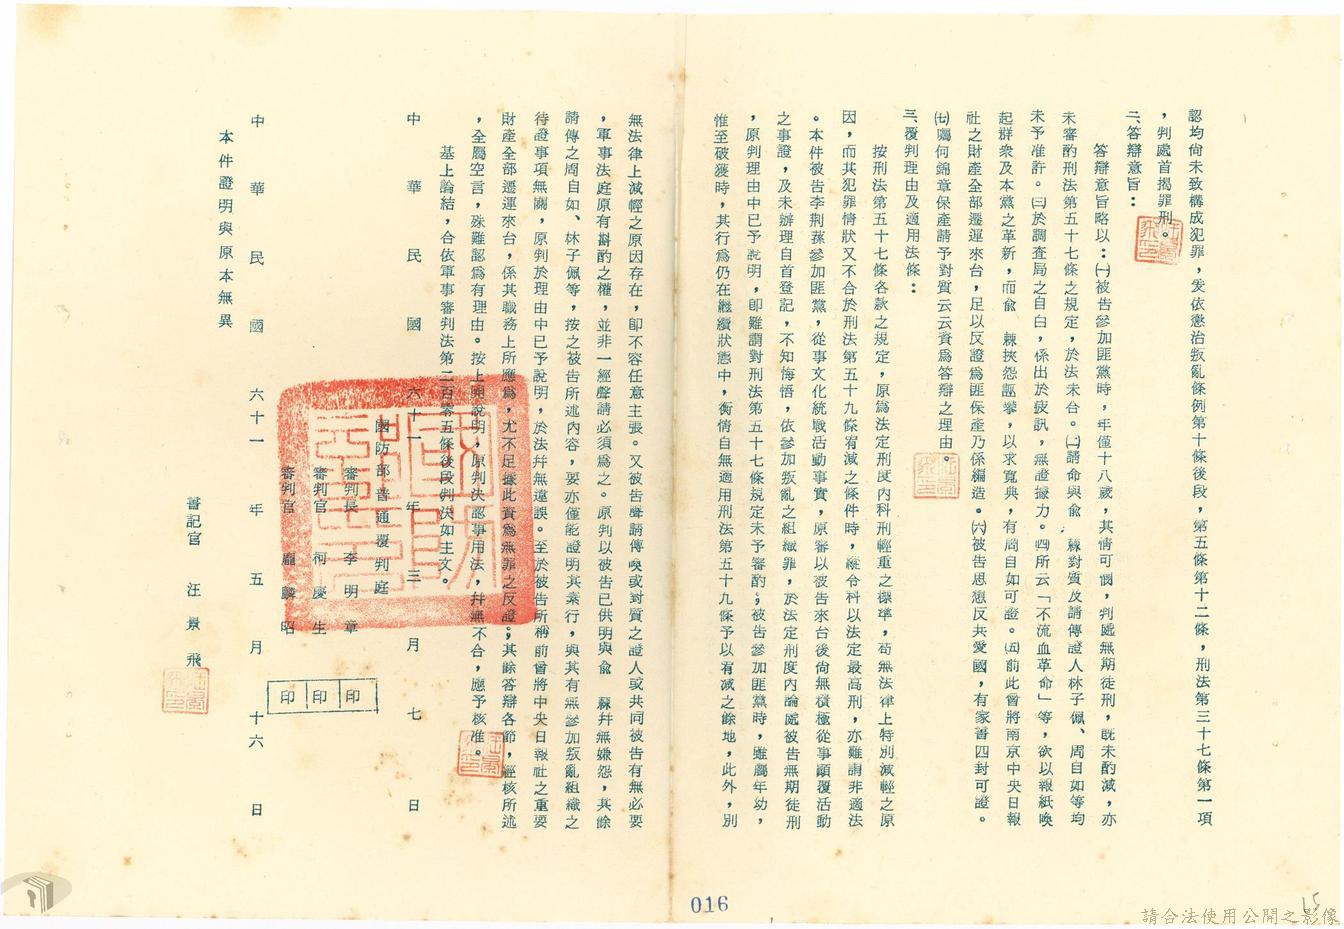 認均尚未致構成犯罪，爰依懲治叛亂條例第十條後段，第五條第十二條，刑法第三十七條第一項
，判處首揭罪刑。
二、答辯意旨：
答辯意旨略以：㈠被告參加匪黨時，年僅十八歲，其情可憫，判處無期徒刑，既未酌減，亦
未審酌刑法第五十七條之規定，於法未合。㈡請命與俞　棘對質及請傳證人林子佩、周自如等均
未予准許。㈢於調查局之自白，係出於疲訊，無證據力。㈣所云「不流血革命」等，欲以報紙喚
起群衆及本黨之革新，而俞　棘挾怨誣攀，以求寬典，有周自如可證。㈤前此曾將南京中央日報
社之財產全部遷運來台，足以反證爲匪保產乃係編造。㈥被告思想反共愛國，有家書四封可證。
㈦囑何錦章保產請予對質云云資爲答辯之理由。
三、覆判理由及適用法條：
按刑法第五十七條各款之規定，原爲法定刑度內科刑輕重之標準，苟無法律上特別減輕之原
因，而其犯罪情狀又不合於刑法第五十九條宥減之條件時，縱令科以法定最高刑，亦難謂非適法
。本件被告李荆蓀參加匪黨，從事文化統戰活動事實，原審以被告來台後尚無積極從事顛覆活動
之事證，及未辦理自首登記，不知悔悟，依參加叛亂之組織罪，於法定刑度內論處被告無期徒刑
，原判理由中已予說明，卽難謂對刑法第五十七條規定未予審酌；被告參加匪黨時，雖屬年幼，
惟至破獲時，其行爲仍在繼續狀態中，衡情自無適用刑法第五十九條予以宥減之餘地，此外，別
無法律上減輕之原因存在，卽不容任意主張。又被告聲請傳喚或對質之證人或共同被告有無必要
，軍事法庭原有斟酌之權，並非一經聲請必須爲之。原判以被告已供明與俞　棘幷無嫌怨，其餘
請傳之周自如、林子佩等，按之被告所述內容，要亦僅能證明其素行，與其有無參加叛亂組織之
待證事項無關，原判於理由中已予說明，於法幷無違誤。至於被告所稱前曾將中央日報社之重要
財產全部遷運來台，係其職務上所應爲，尤不足據此資爲無罪之反證；其餘答辯各節，經核所述
，全屬空言，殊難認爲有理由。按上開說明，原判決認事用法，幷無不合，應予核准。
基上論結，合依軍事審判法第二百零五條後段判決如主文。
中華民國六十一年三月七日
國防部普通覆判庭
審判長　李明章
審判官　柯慶生
審判官　龐麟昭
印
印
印
中華民國六十一年五月十六日
本件證明與原本無異
書記官　汪景飛
016
15
請合法使用公開之影像